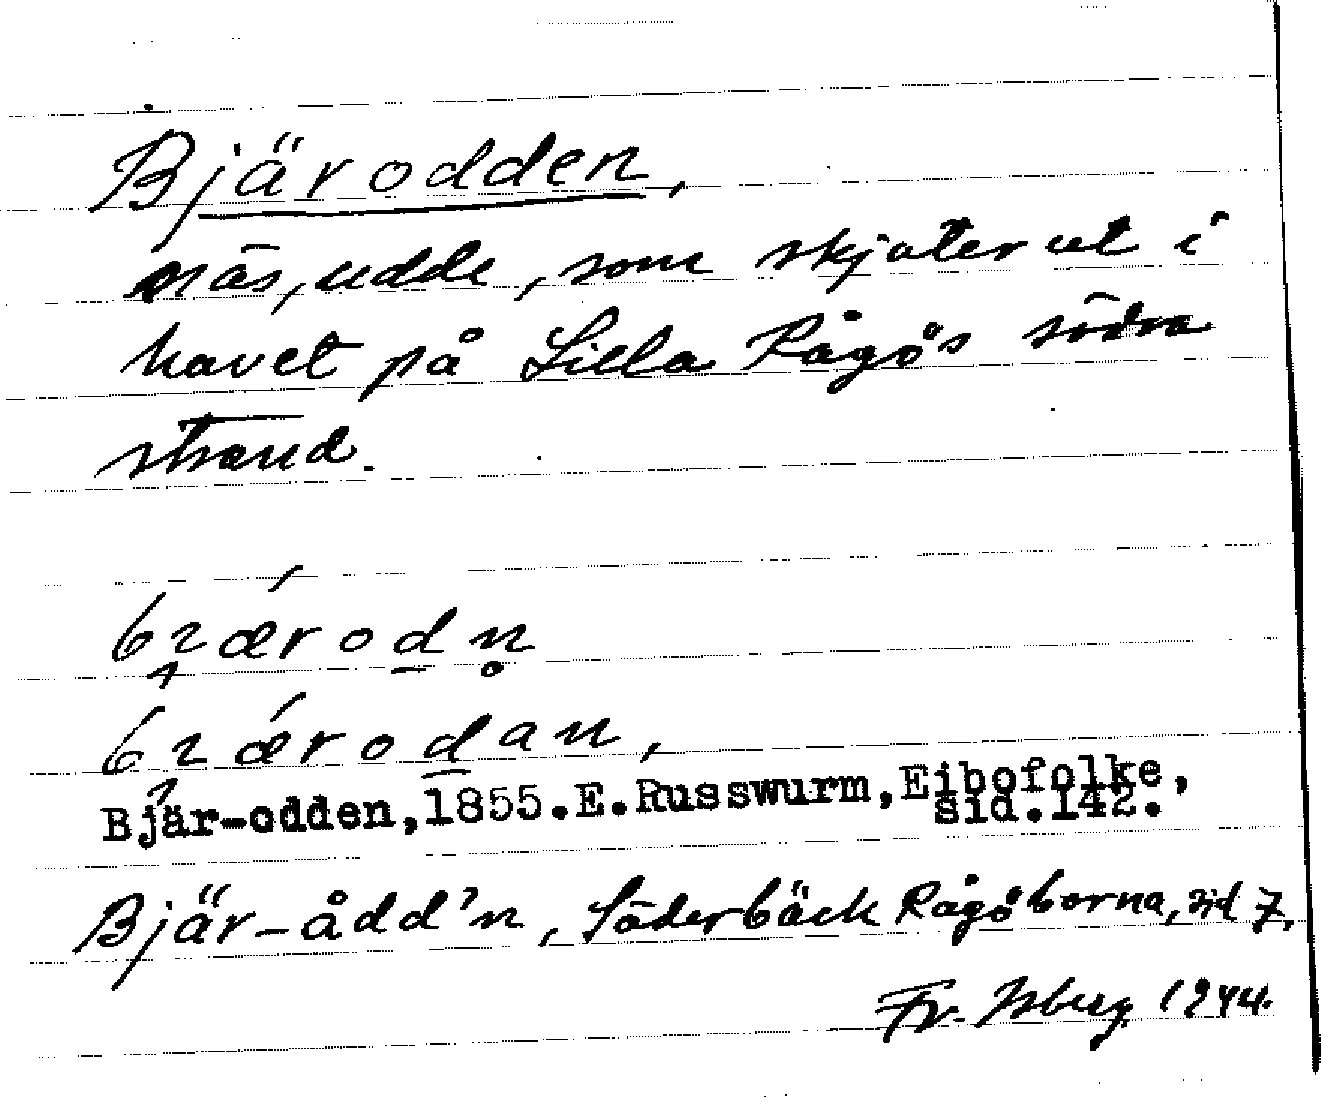 Bjärodden,
näs, udde, som skjuter ut i
havet på Lilla Rågös södra
strand.
bı̯ǽrod̲n̥
bı̯ǽrod̲an,
Bjär-odden, 1855. E. Russwurm, Eibofolke,
sid. 142.
Bjär-ådd'n, Söderbäck Rågöborna, sid 7,
Fr. Isberg 1944.